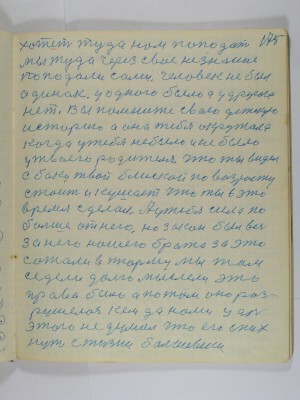 хотел туда нам поподат 175
мы туда через свое незнание
поподали сами. человек не был
адинак, у одного было а у другова
нет. Вы помните свою детскую
историю а она тебя окружала
когда у тебя небыло и не было
у твоего родителя. Что ты видел
с боку твой близкой по возрасту
стоит и кушает что ты в это
время сделал. А у тебя сила по
больше от него, но закон был
за него нашего брата за это
сожали в тюрму мы там
седели долго мыслели это
правда было а потом оно раз-
рушелося кем да нами
этого не думал что его спих
нут с жизни балшевики